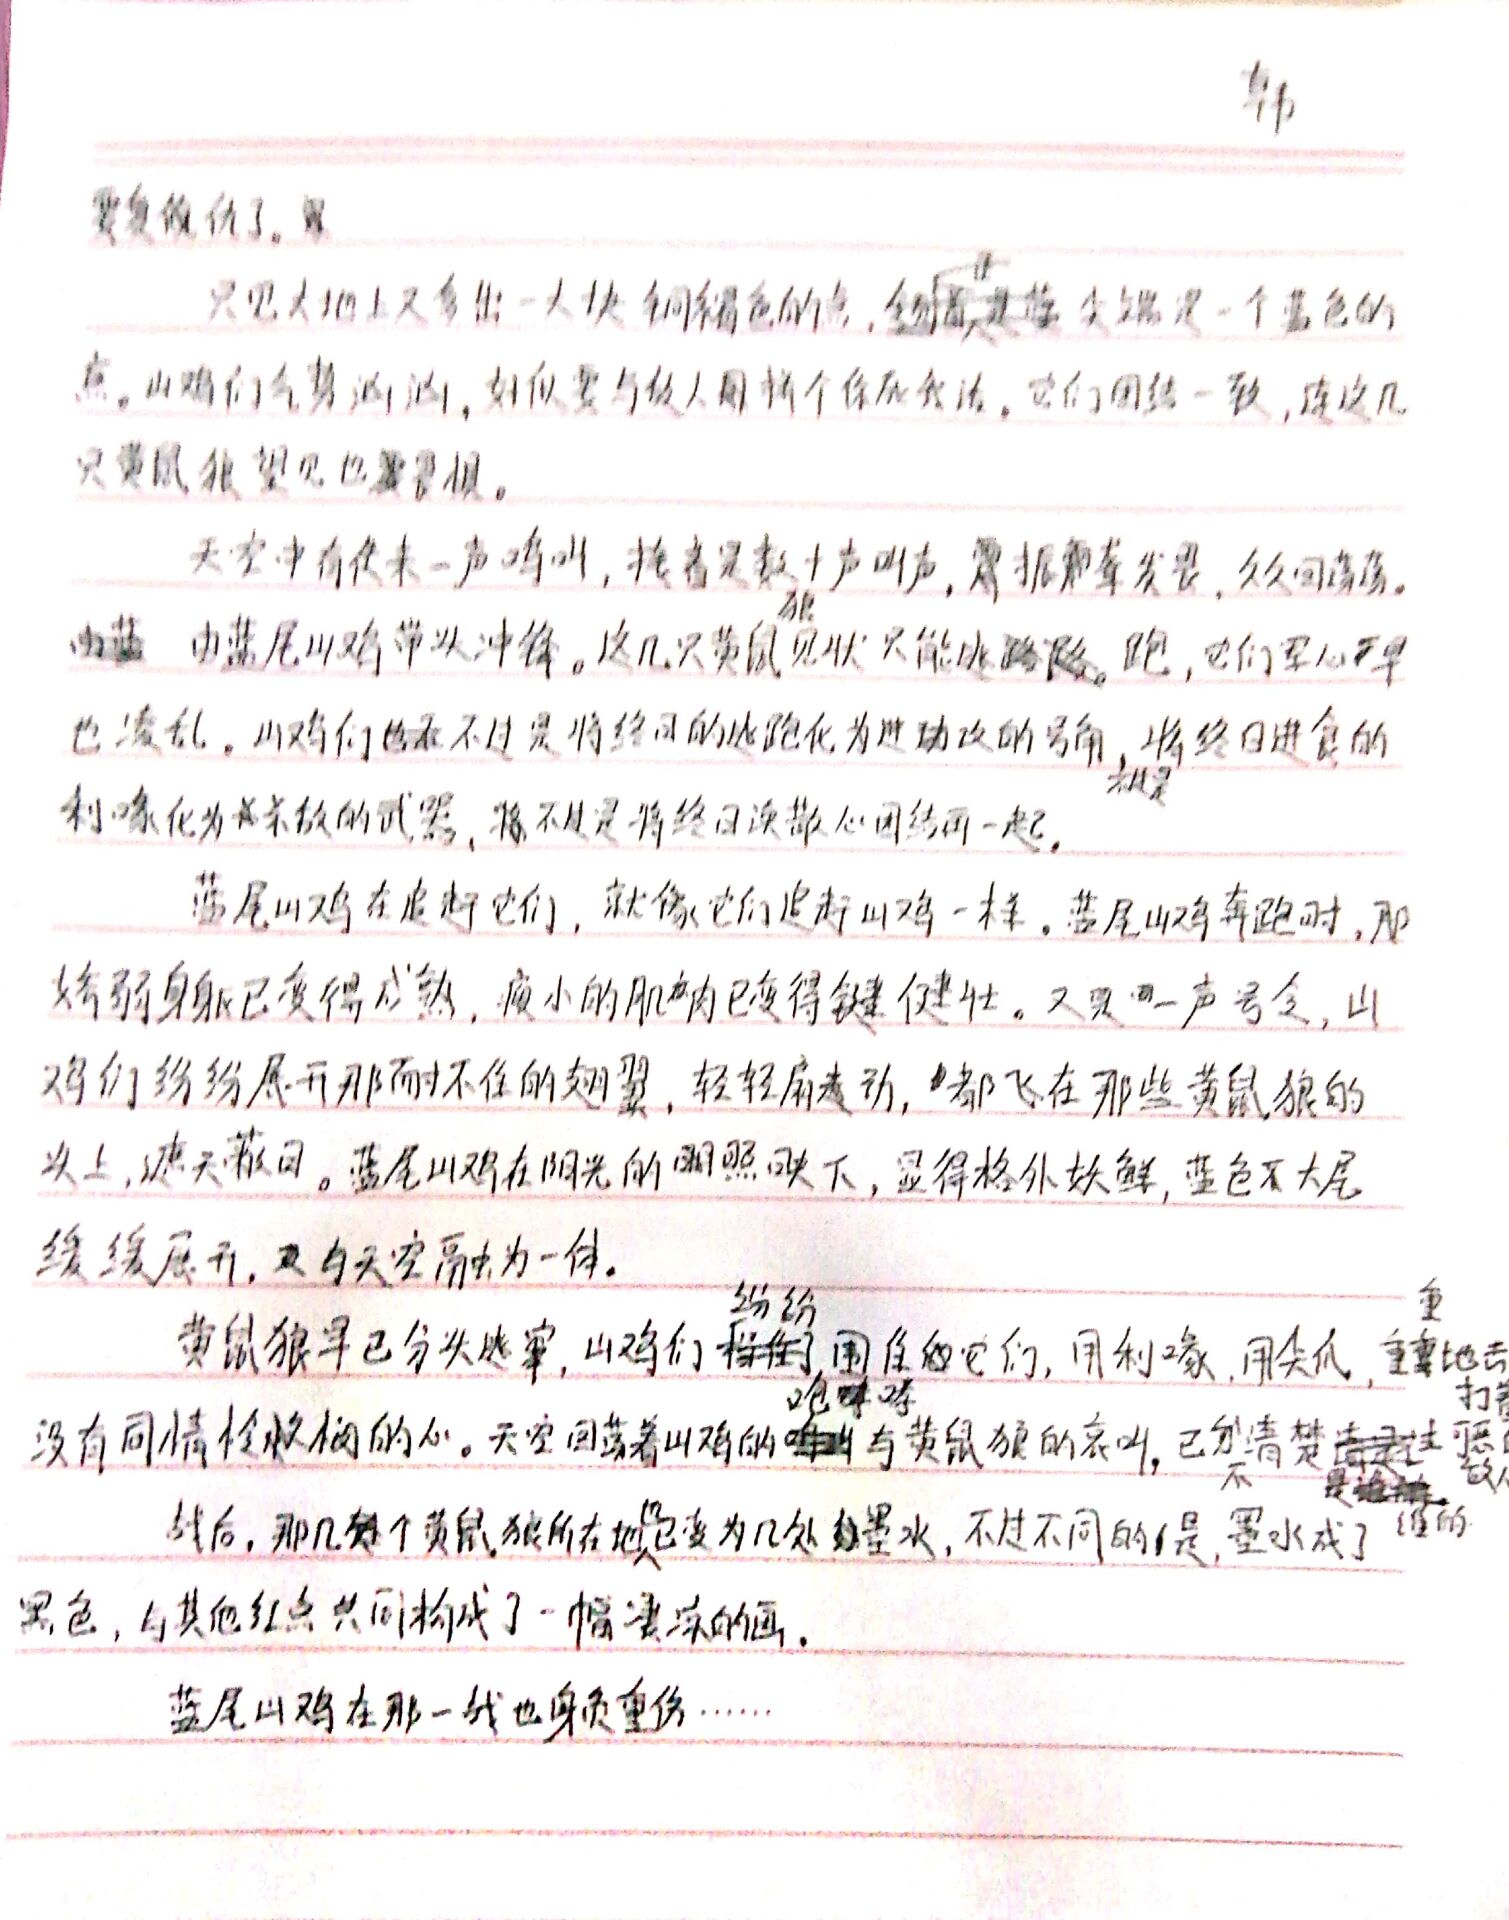 韩
要复仇了。
只见大地上又多出一大块铜褐色的点，尖端是一个蓝色的
点。山鸡们气势汹汹，好似要与敌人用拼个你死我活。它们团结一致，连这几
只黄鼠狼望见也畏惧。
天空中有传来一声鸡叫，接着是数十声叫声，振聋发畏，久久回荡。
由蓝尾山鸡带头冲锋。这几只黄鼠狼见状只能逃跑，它们军心早
也凌乱。山鸡们不过是将终日的逃跑化为进攻的号角，将终日进食的
利喙化为杀敌的武器，不过是将终日涣散心团结在一起。
蓝尾山鸡在追赶它们，就像它们追赶山鸡一样。蓝尾山鸡奔跑时，那
娇弱身躯已变得成熟，瘦小的肌肉已变得健壮。又是一声号令，山
鸡们纷纷展开那耐不住的翅翼，轻轻扇动，都飞在那些黄鼠狼的
头上，遮天蔽日。蓝尾山鸡在阳光的照映下，显得格外妖鲜，蓝色大尾
缓缓展开，与天空融为一体。
黄鼠狼早已分头逃窜，山鸡们纷纷围住它们，用利喙，用尖爪，重重地去打击可恶的敌人
没有同情怜悯的心。天空回荡着山鸡的咆哮与黄鼠狼的哀叫，已分不清楚是谁的
战后，那几个黄鼠狼所在地已变为几处墨水，不过不同的是，墨水成了
黑色，与其他红点共同构成了一幅凄凉的画。
蓝尾山鸡在那一战也身负重伤……